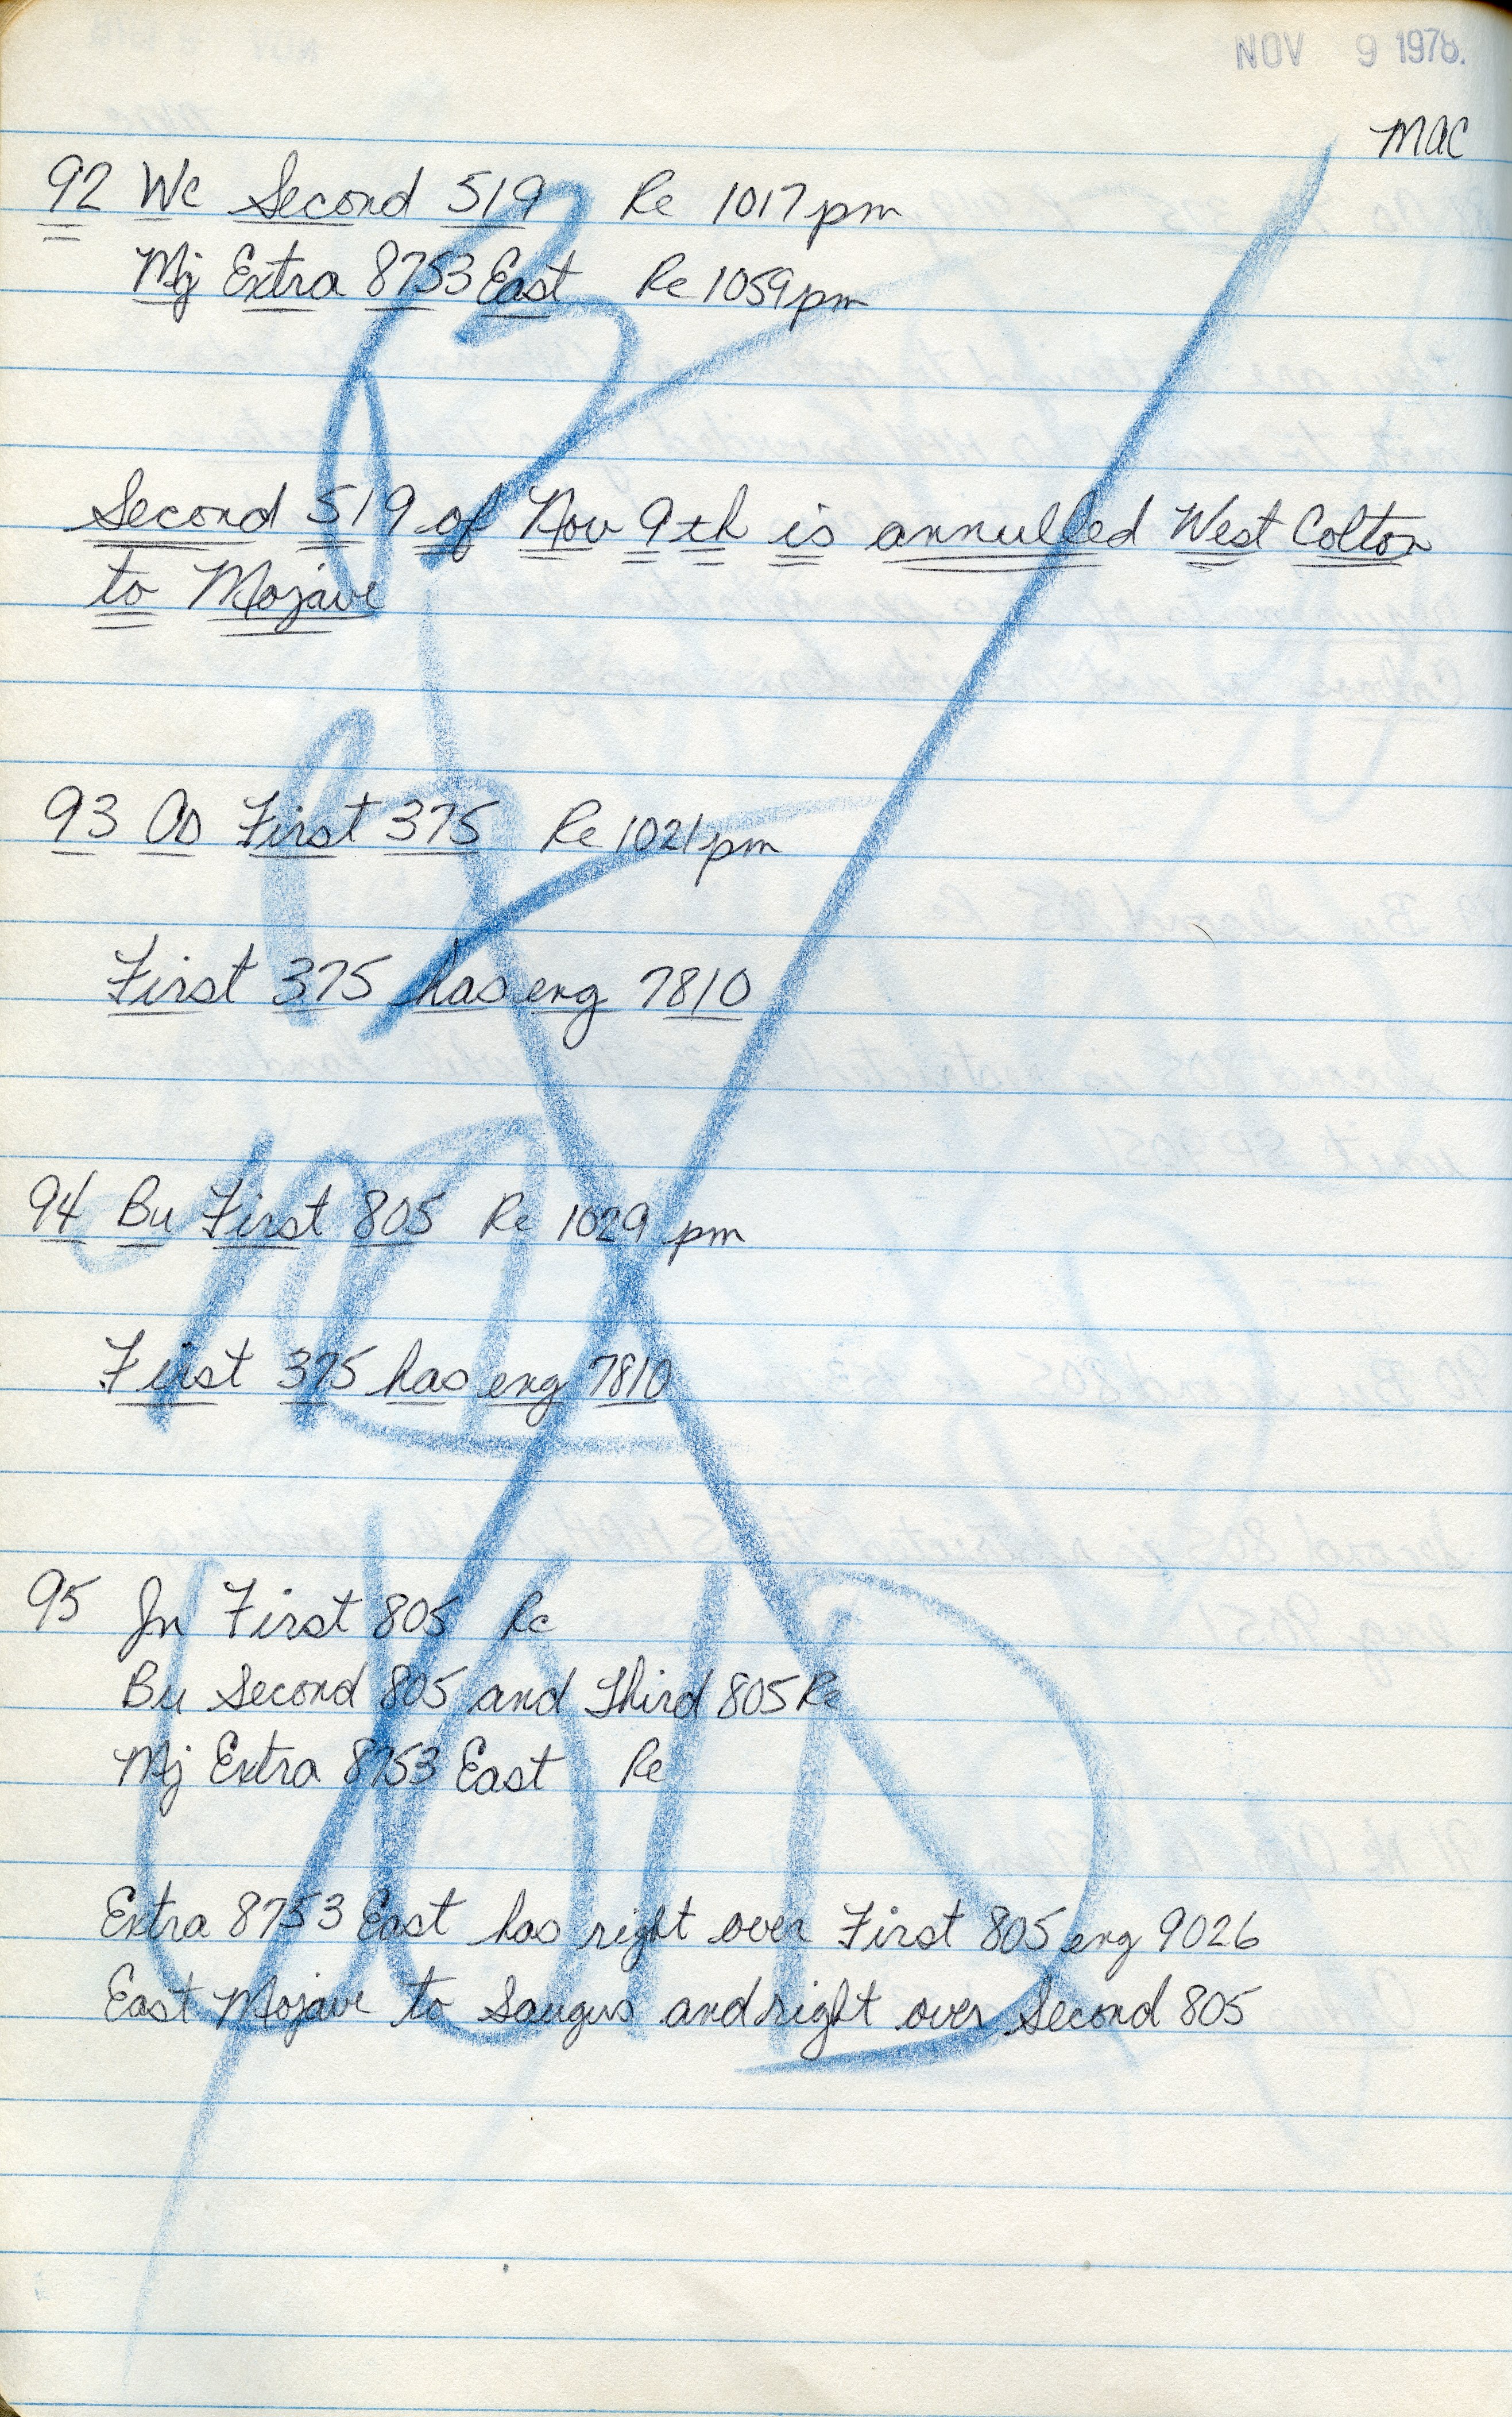 NOV 9 1978.
mac
92 Wc Second 519 Re 1017 pm
Mj Extra 8753 East Re 1059 pm
Second 519 of Nov 9th is annulled West Colton
to Mojave
93 Os First 375 Re 1021 pm
First 375 has eng 7810
94 Bu First 805 Re 1029 pm
First 375 has eng 7810
95 Jn First 805 Re
Bu Second 805 and Third 805 Re
Mj Extra 8753 East Re
VOID
Extra 8753 East has right over First 805 eng 9026
East Mojave to Saugus and right over Second 805